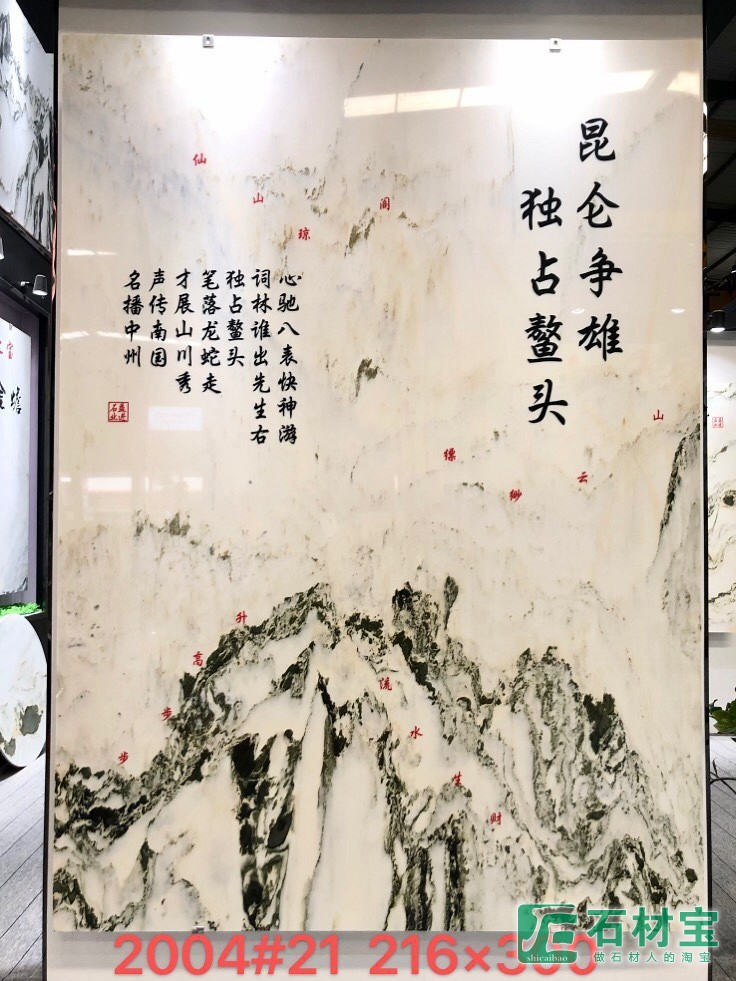 昆仑争雄
独占鳌头
心驰八表快神游
词林谁出先生右
独占鳌头
笔落龙蛇走
才展山川秀
声传南国
名播中州
仙山琼阁
山云缈缥
步步高升
流水生财
2004#21 216×300
石材宝
shicaibao
做石材人的淘宝